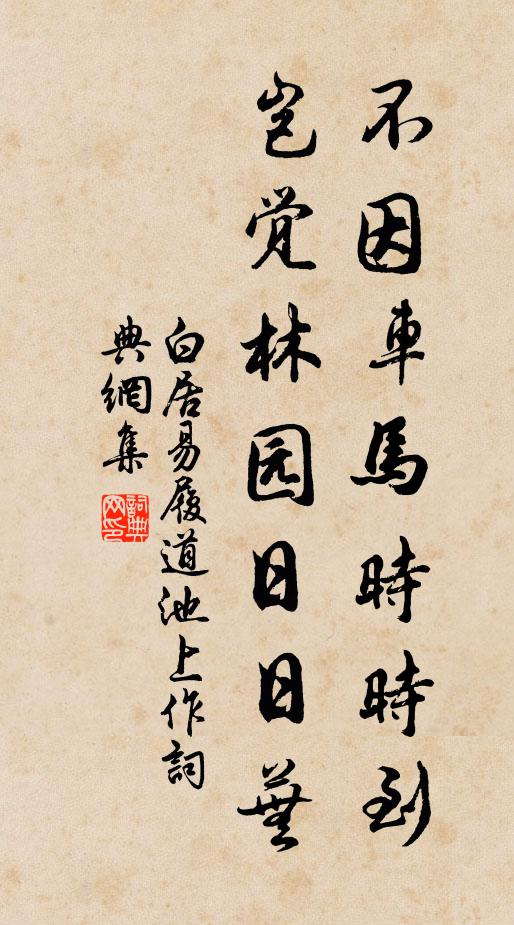 不因車馬時時到
岂覺林园日日蕪
白居易履道池上作詞
典網集
詞典网印